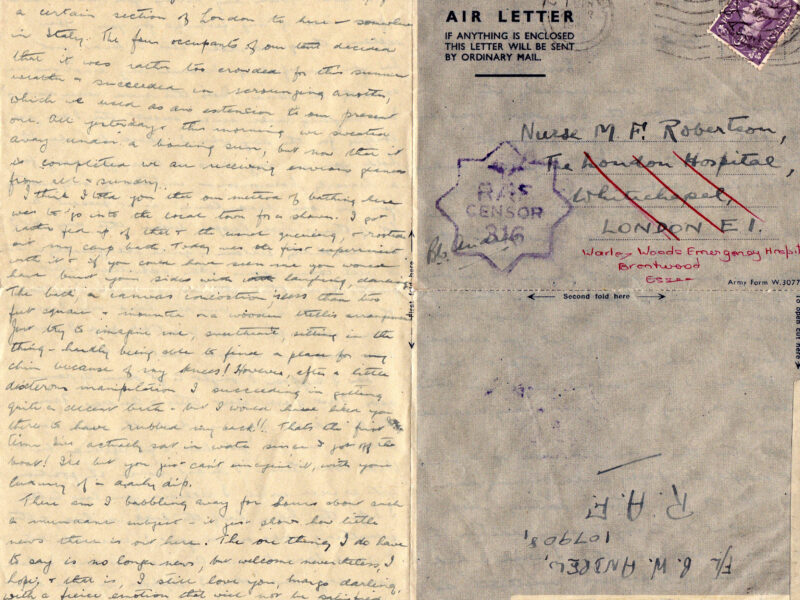 a certain section of London to here – somewhere
in Italy. The four occupants of our tent decided
that it was rather too crowded for this summer
weather & succeeded in scrounging another,
which we used as an extension to our present
one. All yesterday & this morning we sweated
away under a boiling sun, but now that it
is completed we are receiving envious glances
from all & sundry.
I think I told you that our method of bathing here
was to go into the local town for a shower. I got
rather fed up of that & the usual queueing, &
out my camp bath. Today was the first experiment
with it & if you could have seen me you would
have burst your sides with laughing, darling.
The bath, a canvas concoction less than two
feet square & mounted on a wooden trellis arrangement.
Just try to imagine me, sweetheart, sitting in the
thing – hardly being able to find a place for my
chin because of my knees! However, after a little
dexterous manipulation I succeeding in getting
quite a decent bath – but I would have liked you
there to have rubbed my back!! Thats the first
time I've actually sat in water since I got off the
boat! I'll bet you just can't imagine it, with your
luxury of a daily dip.
There am I babbling away for hours about such
a mundane subject – it just shows how little
news there is out here. The one thing I do have
to say is no longer news, but welcome nevertheless, I
hope, & that is, I still love you, margo darling,
with a fierce emotion that will not be satisfied
AIR LETTER
IF ANYTHING IS ENCLOSED
THIS LETTER WILL BE SENT
BY ORDINARY MAIL.
Nurse M. F. Robertson,
The London Hospital,
Whitechapel,
LONDON E1.
RAF
CENSOR
316
Warley Woods Emergency Hospit
Brentwood
Essex
Army Form W.3077
First fold here
Second fold here
To open cut here
F/L B. W. ANDREW,
107908,
R.A.F.